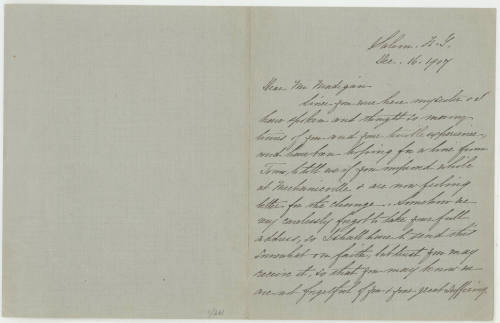 Salem. N.Y.
Dec. 16. 1907
Dear Mr Madigan
Since you were here my sister & I
have spoken and thought so many
times of you and your terrible experience,
and have been hoping for a line from
Tom, to tell us if you improved while
at Mechanicville & are now feeling
better for the change. Somehow we
very carelessly forgot to take your full
address, so I shall have to send this
somewhat on faith, but trust you may
receive it, so that you may know we
are not forgetful of you & your great suffering